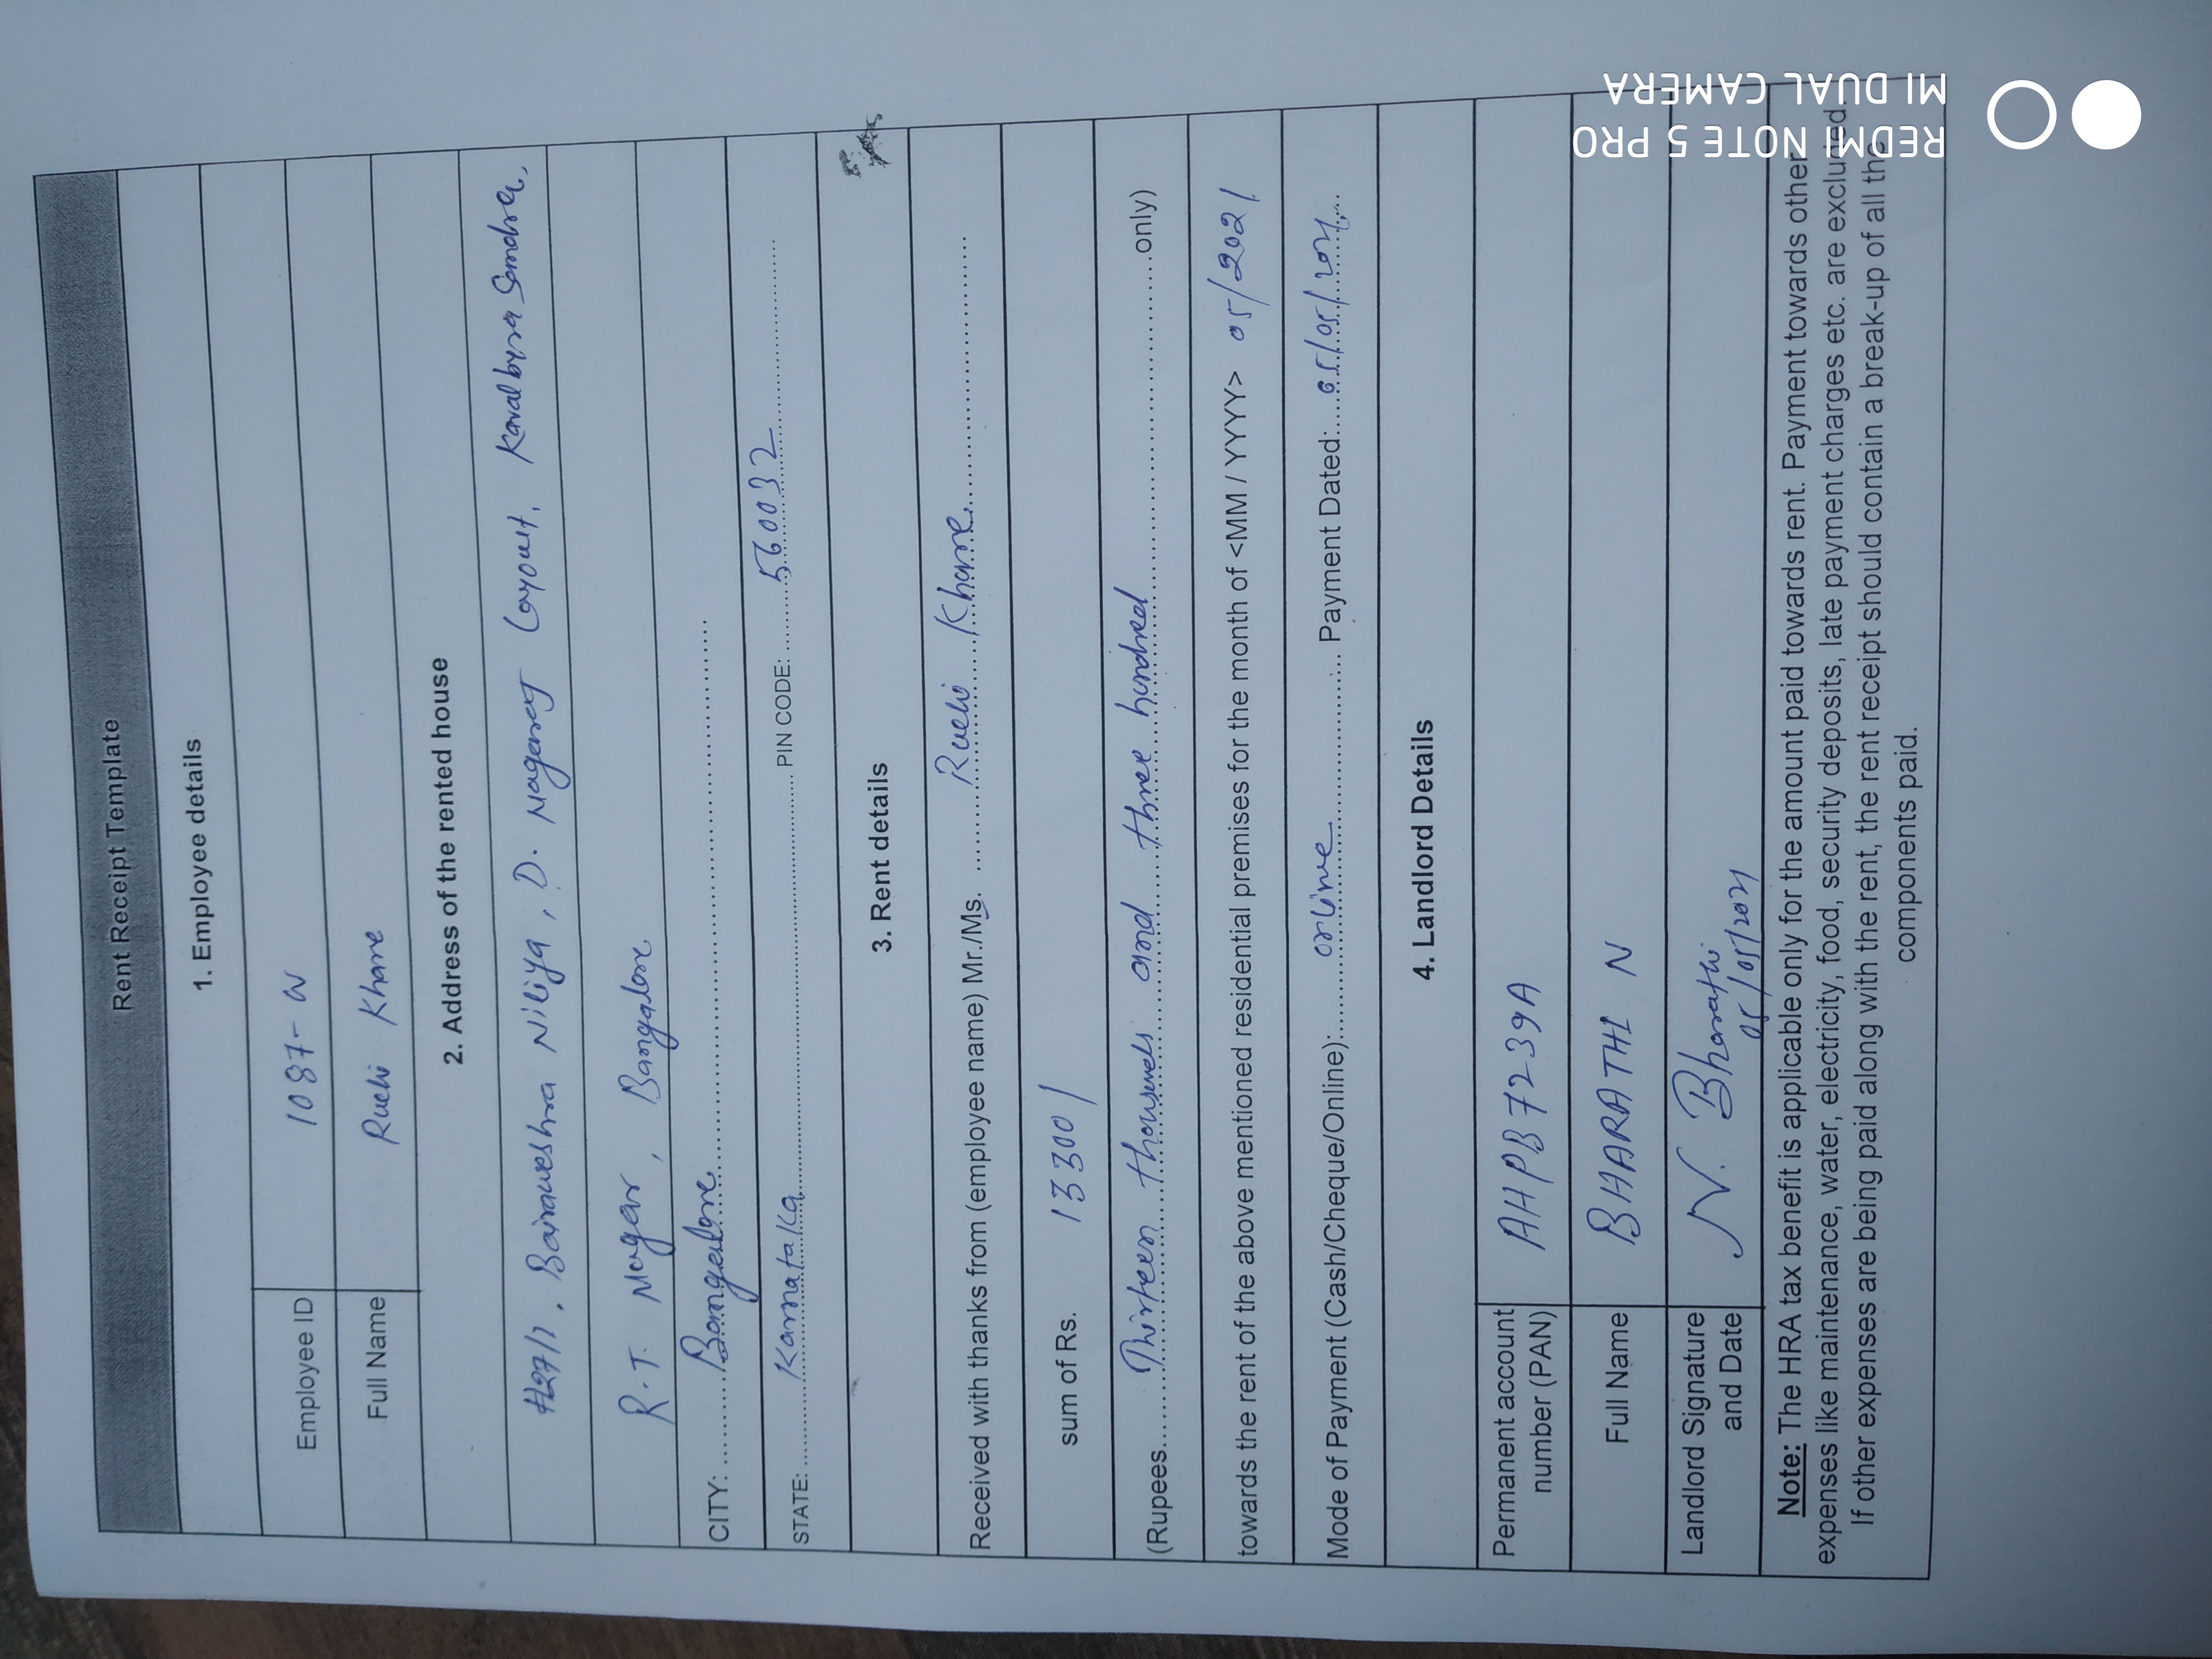 Rent Receipt Template
1. Employee details
Employee ID 1087-W
Full Name Ruchi Khare
2. Address of the rented house
#27/1, Bairaweshra Niliya, D. Nagenay Layout, Kavalbyra Sandra,
R.T. Nagar, Bangalore
CITY: ..........Bangalore..........
STATE: ..........Karnataka.......... PIN CODE: ..........560032..........
3. Rent details
Received with thanks from (employee name) Mr./Ms. ..........Ruchi Khare..........
sum of Rs. 13300/
(Rupees..........Thirteen thousands and three hundred..........only)
towards the rent of the above mentioned residential premises for the month of <MM / YYYY> 05/2021
Mode of Payment (Cash/Cheque/Online):..........online.......... Payment Dated:.....05/05/2021.....
4. Landlord Details
Permanent account number (PAN) AHPB7239A
Full Name BHARATHI N
Landlord Signature and Date N. Bharathi
05/05/2021
Note: The HRA tax benefit is applicable only for the amount paid towards rent. Payment towards other
expenses like maintenance, water, electricity, food, security deposits, late payment charges etc. are excluded.
If other expenses are being paid along with the rent, the rent receipt should contain a break-up of all the
components paid.
REDMI NOTE 5 PRO
MI DUAL CAMERA